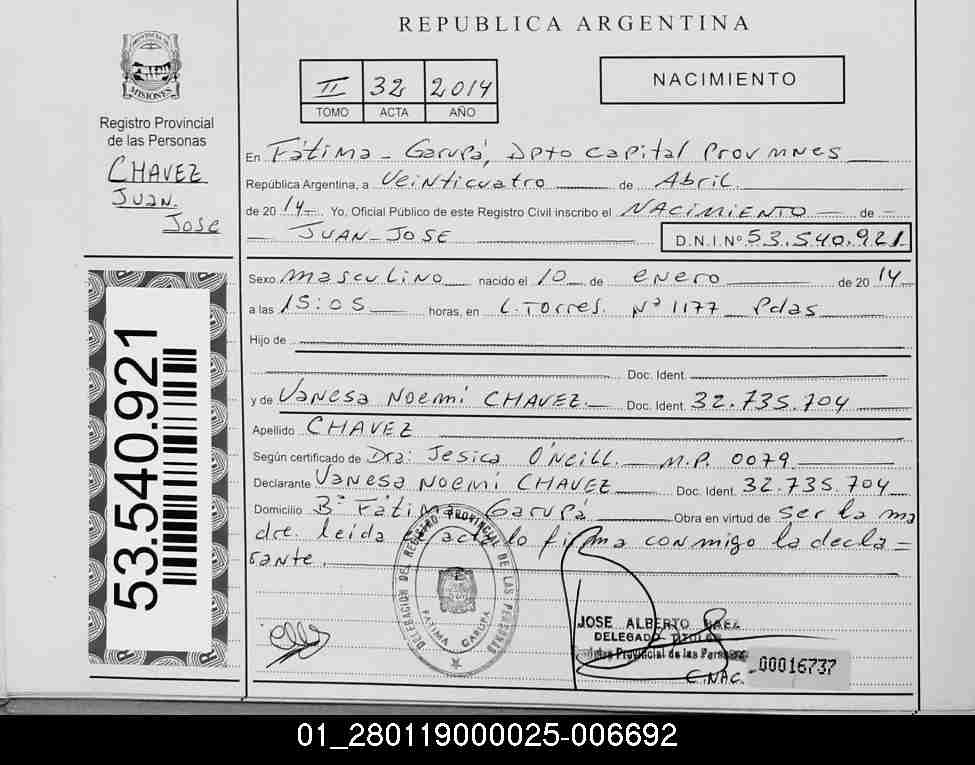 REPUBLICA ARGENTINA
PROVINCIA DE
MISIONES
Registro Provincial
de las Personas
CHAVEZ
JUAN
JOSE
II 32 2014
TOMO ACTA AÑO
NACIMIENTO
En Fátima - Garupá, Dpto capital Prov MNES
República Argentina, a Veinticuatro de Abril.
de 2014 Yo, Oficial Público de este Registro Civil inscribo el NACIMIENTO de
JUAN JOSE D.N.I. Nº 53.540.921
Sexo masculino nacido el 10 de enero de 2014
a las 15:05 horas, en L. Torres. Nº 1177 Pdas
Hijo de
Doc. Ident.
y de Vanesa Noemi CHAVEZ. Doc. Ident. 32.735.704
Apellido CHAVEZ
Según certificado de Dra: Jesica O'neill. M.P. 0079
Declarante Vanesa Noemi CHAVEZ Doc. Ident. 32.735.704
Domicilio Bº Fátima Garupá Obra en virtud de ser la ma
dre. leída el acta lo firma conmigo la decla=
rante.
53.540.921
DELEGACION DEL REGISTRO PROVINCIAL DE LAS PERSONAS
FATIMA GARUPA
JOSE ALBERTO BAEZ
DELEGADO TITULAR
Registro Provincial de las Personas
C.NAC. 00016737
01_280119000025-006692